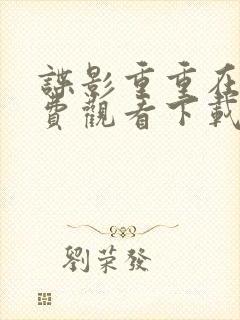 諜影重重在
費觀看下載
劉荣發